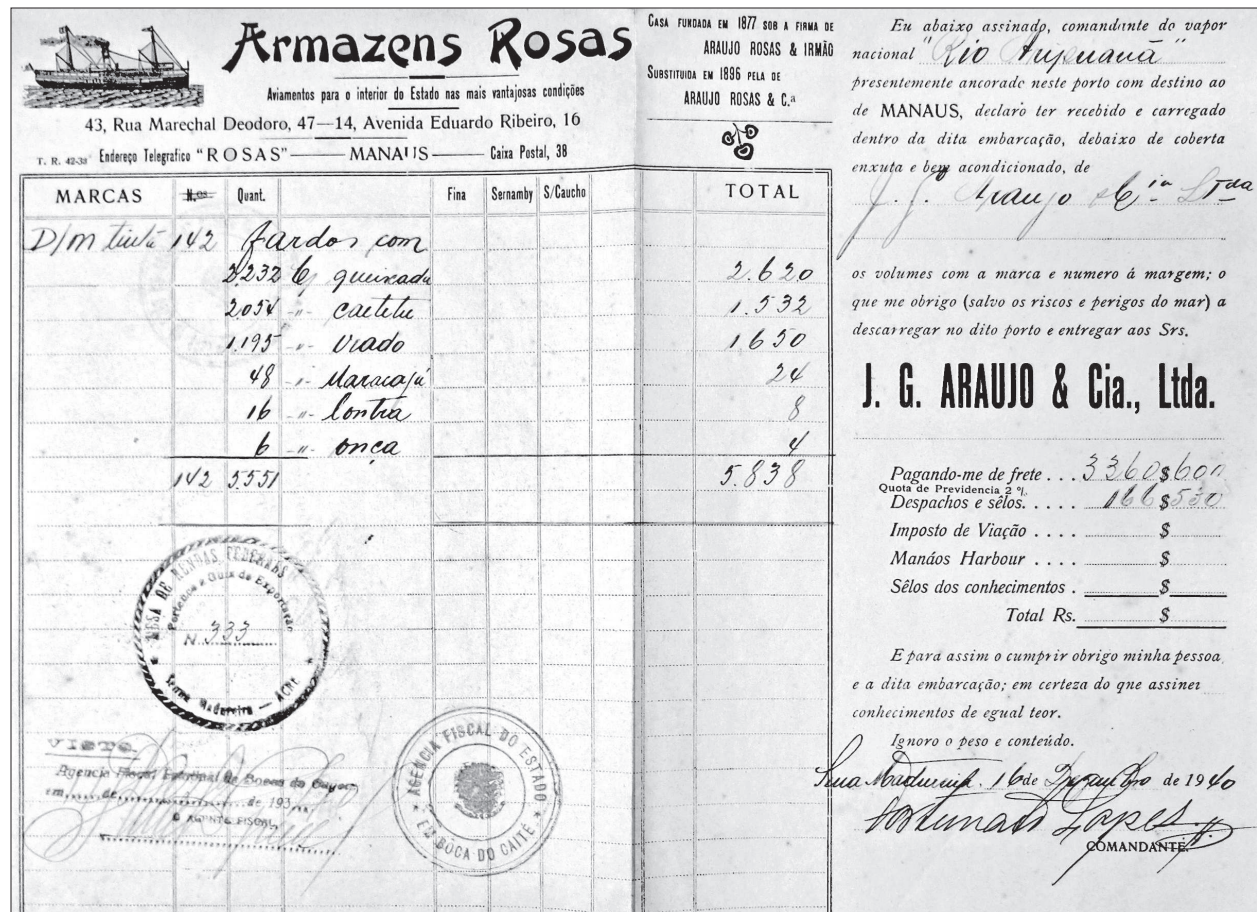 Armazens Rosas
Aviamentos para o interior do Estado nas mais vantajosas condições
43, Rua Marechal Deodoro, 47—14, Avenida Eduardo Ribeiro, 16
T. R. 42-38 Endereço Telegrafico "ROSAS" — MANAUS — Caixa Postal, 38
CASA FUNDADA EM 1877 SOB A FIRMA DE
ARAUJO ROSAS & IRMÃO
SUBSTITUIDA EM 1896 PELA DE
ARAUJO ROSAS & C.ª
MARCAS N.os Quant. Fina Sernamby S/Caucho TOTAL
D/m tinta 142 fardos com
2.232 queixada 2.620
2054 -"- caetetu 1.532
1.195 -"- viado 1650
48 -"- Maracajá 24
16 -"- Contra 8
6 -"- onça 4
142 5551 5.838
MESA DE RENDAS FEDERAES
Pertence a Guia de Exportação
N. 333
Senna Madureira — ACRE
VISTO
Agencia Fiscal Estadual de Bocca do
em, de de 193
O AGENTE FISCAL
AGENCIA FISCAL DO ESTADO
EM BOCA DO CAITÉ
Eu abaixo assinado, comandante do vapor
nacional "Rio Aripuanã"
presentemente ancorado neste porto com destino ao
de MANAUS, declaro ter recebido e carregado
dentro da dita embarcação, debaixo de coberta
enxuta e bem acondicionado, de
J. G. Araujo & Cia Ltda
os volumes com a marca e numero á margem; o
que me obrigo (salvo os riscos e perigos do mar) a
descarregar no dito porto e entregar aos Srs.
J. G. ARAUJO & Cia., Ltda.
Pagando-me de frete . . . 3360$600
Quota de Previdencia 2 %
Despachos e sêlos. . . . . 166$530
Imposto de Viação . . . . $
Manáos Harbour . . . . $
Sêlos dos conhecimentos . $
Total Rs. $
E para assim o cumprir obrigo minha pessoa
e a dita embarcação; em certeza do qne assinei
conhecimentos de egual teor.
Ignoro o peso e conteúdo.
Sena Madureira, 16 de Dezembro de 1940
Fortunato Lopes
COMANDANTE.